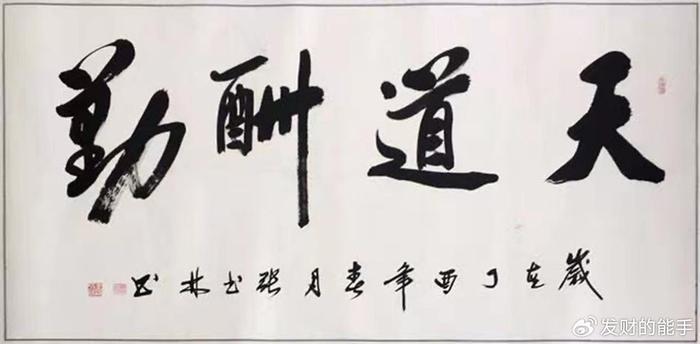 天道酬勤
歲在丁酉年春月张书林书
@发财的能手